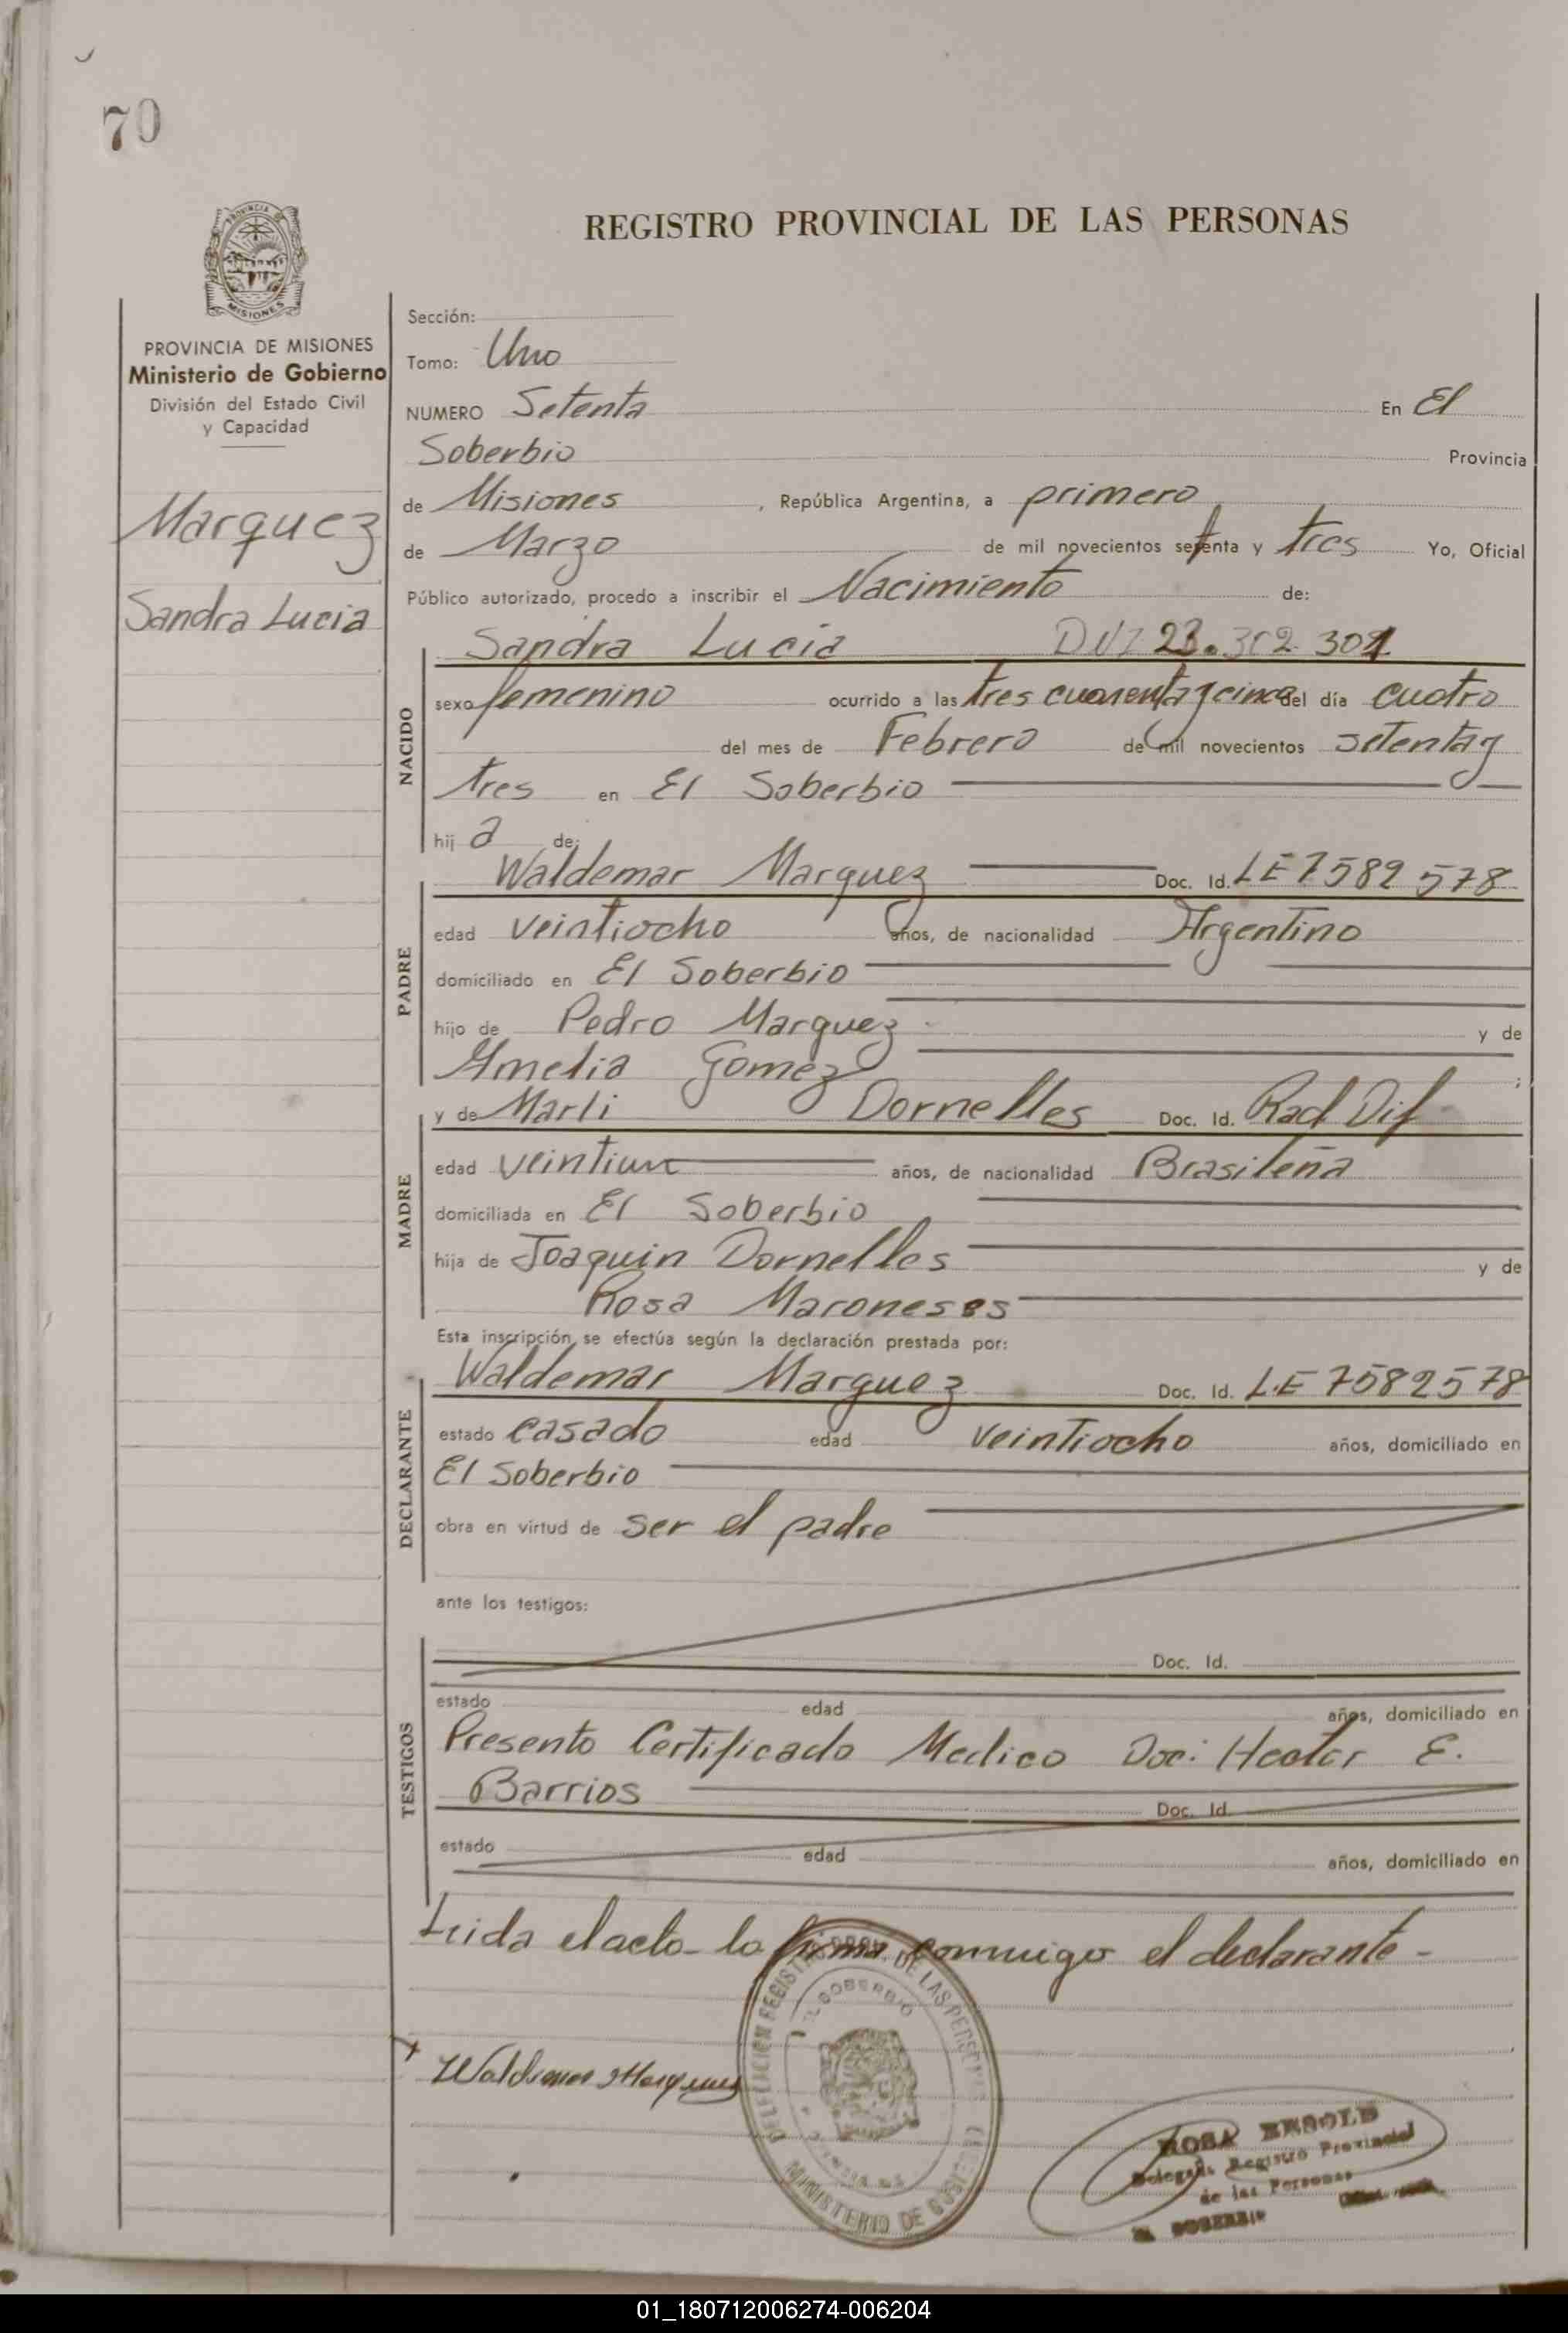 70
REGISTRO PROVINCIAL DE LAS PERSONAS
PROVINCIA DE
MISIONES
PROVINCIA DE MISIONES
Ministerio de Gobierno
División del Estado Civil
y Capacidad
Marquez
Sandra Lucia
Sección:
Tomo: Uno
NUMERO Setenta En El
Soberbio Provincia
de Misiones , República Argentina, a primero
de Marzo de mil novecientos setenta y tres Yo, Oficial
Público autorizado, procedo a inscribir el Nacimiento de:
NACIDO
Sandra Lucia DNI 23.302.301
sexo femenino ocurrido a las tres cuarenta y cinco del día cuatro
del mes de Febrero de mil novecientos setenta y
tres en El Soberbio
hij a de:
PADRE
Waldemar Marquez Doc. Id. LE 7582 578
edad veintiocho años, de nacionalidad Argentino
domiciliado en El Soberbio
hijo de Pedro Marquez y de
Amelia Gomez ;
MADRE
y de Marli Dornelles Doc. Id. Rad Dif
edad veintiun años, de nacionalidad Brasileña
domiciliada en El Soberbio
hija de Joaquin Dornelles y de
Rosa Maroneses
Esta inscripción se efectúa según la declaración prestada por:
DECLARANTE
Waldemar Marquez Doc. Id. L.E 7582578
estado casado edad veintiocho años, domiciliado en
El Soberbio
obra en virtud de ser el padre
ante los testigos:
TESTIGOS
Doc. Id.
estado edad años, domiciliado en
Presento Certificado Medico Doc: Hector E.
Barrios Doc. Id.
estado edad años, domiciliado en
Leida el acta la firma conmigo el declarante -
Waldemar Marquez
DELEGACION REGISTRO PROV. DE LAS PERSONAS
EL SOBERBIO
MINISTERIO DE GOBIERNO
ROSA
Delegada Registro Provincial
de las Personas
EL SOBERBIO
01_180712006274-006204